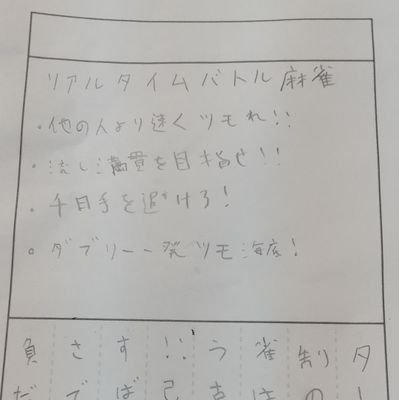 リアルタイムバトル麻雀
・他の人より速くツモれ!!
・流し満貫を目指せ!!
・千日手を避けろ!
・ダブリー一発ツモ海底!
ター
制の
雀は
う古
!!己
すば
さで
負だ